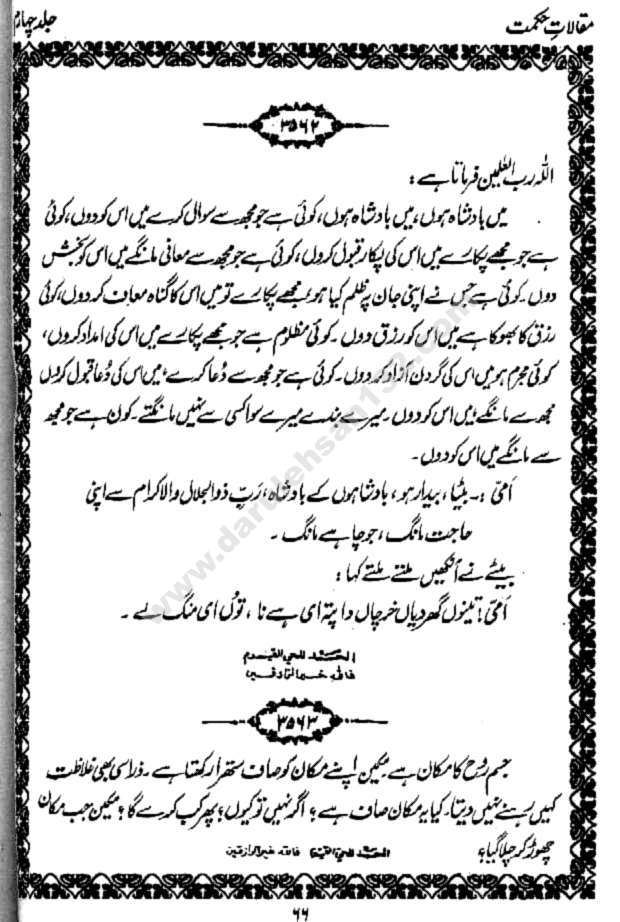 مقالاتِ حکمت
جلد چہارم
۳۵۶۲
اللہ رب العٰلمین فرماتا ہے :
میں بادشاہ ہوں، میں بادشاہ ہوں، کوئی ہے جو مجھ سے سوال کرے میں اس کو دوں، کوئی
ہے جو مجھے پکارے میں اس کی پکار قبول کروں، کوئی ہے جو مجھ سے معافی مانگے میں اس کو بخش
دوں۔ کوئی ہے جس نے اپنی جان پر ظلم کیا ہو، مجھے پکارے تو میں اس کا گناہ معاف کر دوں، کوئی
رزق کا بھوکا ہے میں اس کو رزق دوں۔ کوئی مظلوم ہے جو مجھے پکارے میں اس کی امداد کروں،
کوئی مجرم ہو میں اس کی گردن آزاد کر دوں۔ کوئی ہے جو مجھ سے دُعا کرے، میں اس کی دُعا قبول کروں
مجھ سے مانگے، میں اس کو دوں۔ میرے بندے میرے سوا کسی سے نہیں مانگتے۔ کون ہے جو مجھ
سے مانگے میں اس کو دوں۔
اَمّی :۔ بیٹا، بیدار ہو، بادشاہوں کے بادشاہ، رَبِّ ذوالجلال والاکرام سے اپنی
حاجت مانگ، جو چاہے مانگ۔
بیٹے نے آنکھیں ملتے ملتے کہا :
اَمّی! تینوں گھر دیاں خرچاں دا پتہ ای ہے نا، توُں ای منگ لے۔
الحمد للحی القیوم
فاللہ خیر الرازقین
۳۵۶۳
جسم روح کا مکان ہے مکین اپنے مکان کو صاف ستھرا رکھتا ہے۔ ذرا سی بھی غلاظت
کہیں رہنے نہیں دیتا۔ کیا یہ مکان صاف ہے؟ اگر نہیں تو کیوں؟ پھر کب کرے گا؟ مکین جب مکان
چھوڑ کر چلا گیا؟
الحمد للحی القیوم فاللہ خیر الرازقین
۶۶
www.darulehsan132.com